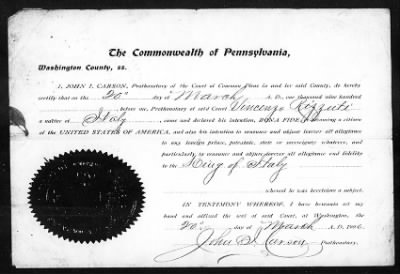 The Commonwealth of Pennsylvania,
Washington County, ss.
I, JOHN I. CARSON, Prothonotary of the Court of Common Pleas in and for said County, do hereby
certify that on the 20" day of March A. D., one thousand nine hundred
before me, Prothonotary of said Court Vincenzo Rizzuti
a native of Italy, came and declared his intention, BONA FIDE, of becoming a citizen
of the UNITED STATES OF AMERICA, and also his intention to renounce and abjure forever all allegiance
to any foreign prince, potentate, state or sovereignty whatever, and
particularly to renounce and abjure forever all allegiance and fidelity
to the King of Italy
whereof he was heretofore a subject.
IN TESTIMONY WHEREOF, I have hereunto set my
hand and affixed the seal of said Court, at Washington, the
20" day of March A. D. 1906.
John I. Carson Prothonotary.